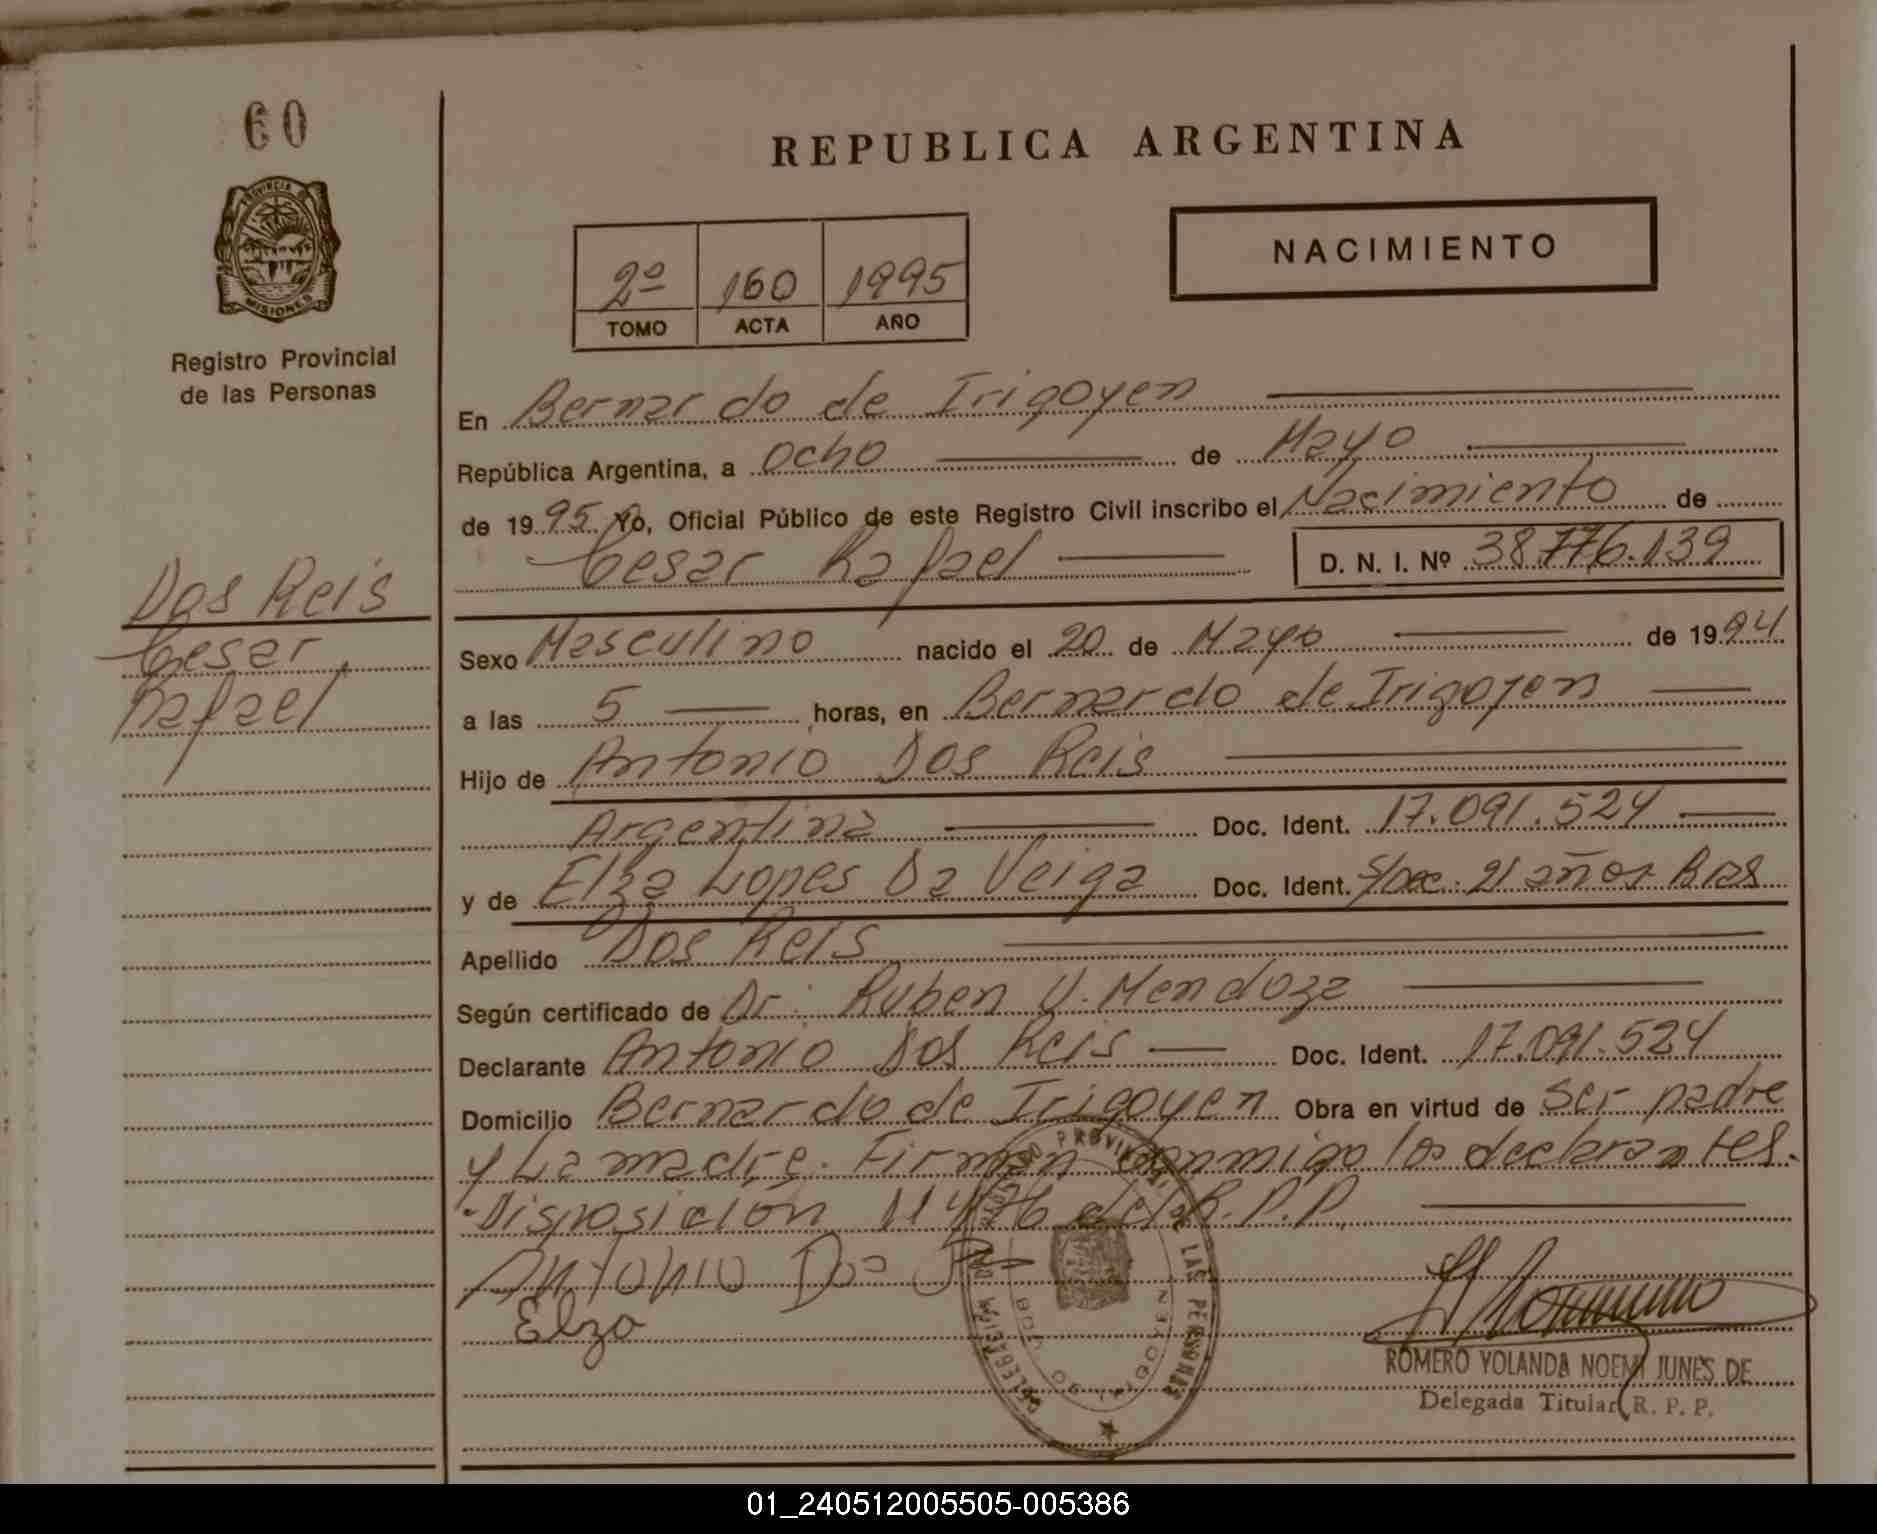 60
PROVINCIA D
MISIONES
Registro Provincial
de las Personas
Dos Reis
Cesar
Rafael
REPUBLICA ARGENTINA
NACIMIENTO
2º 160 1995
TOMO ACTA AÑO
En Bernardo de Irigoyen
República Argentina, a ocho de Mayo
de 1995 Yo, Oficial Público de este Registro Civil inscribo el Nacimiento de
Cesar Rafael D. N. I. Nº 38.776.139
Sexo Masculino nacido el 20 de Mayo de 1994
a las 5 horas, en Bernardo de Irigoyen
Hijo de Antonio Dos Reis
Argentina Doc. Ident. 17.091.524
y de Elza Lopes Da Veiga Doc. Ident. S/Doc. 21 años Bras
Apellido Dos Reis
Según certificado de Dr. Ruben U. Mendoza
Declarante Antonio Dos Reis Doc. Ident. 17.091.524
Domicilio Bernardo de Irigoyen Obra en virtud de ser padre
y La madre. Firman conmigo los declarantes.
Disposición 11476 del R.P.P.
ANTONIO Dos
Elza
PROVINCIAL DE LAS PERSONAS
ROMERO YOLANDA NOEMI JUNES DE
Delegada Titular R. P. P.
01_240512005505-005386